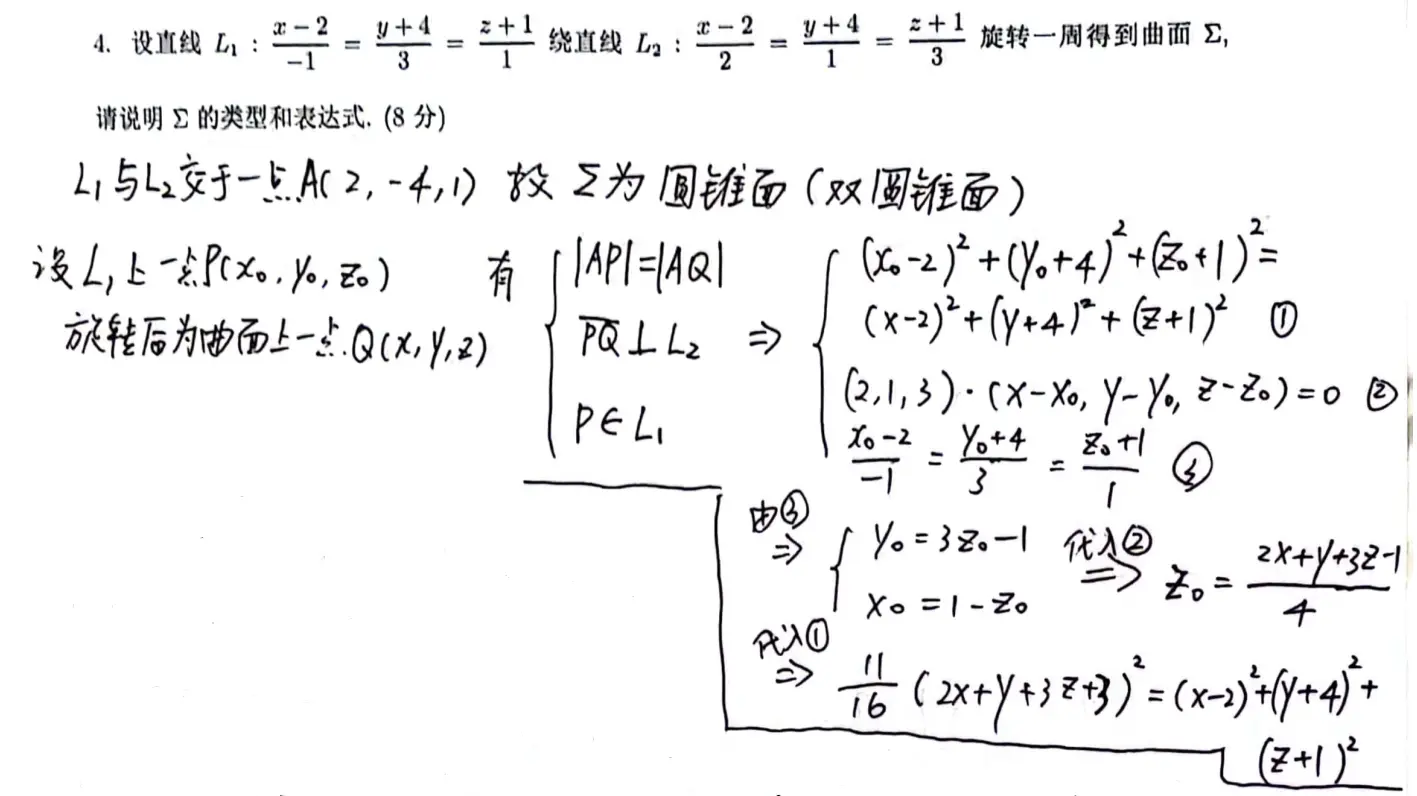 4. 设直线 L₁ : (x−2)/(−1) = (y+4)/3 = (z+1)/1 绕直线 L₂ : (x−2)/2 = (y+4)/1 = (z+1)/3 旋转一周得到曲面 Σ,
请说明 Σ 的类型和表达式. (8 分)
L₁与L₂交于一点A(2,-4,1) 故 Σ为圆锥面(双圆锥面)
设L₁上一点P(x₀,y₀,z₀)
旋转后为曲面上一点Q(x,y,z)
有 { |AP|=|AQ|
PQ⊥L₂
P∈L₁
⇒ { (x₀-2)²+(y₀+4)²+(z₀+1)²=
(x-2)²+(y+4)²+(z+1)² ①
(2,1,3)·(x-x₀, y-y₀, z-z₀)=0 ②
(x₀-2)/(-1) = (y₀+4)/3 = (z₀+1)/1 ③
由③ ⇒ { y₀=3z₀-1
x₀=-1-z₀
代入② ⇒ z₀ = (2x+y+3z-1)/4
代入① ⇒ 11/16 (2x+y+3z+3)²=(x-2)²+(y+4)²+
(z+1)²